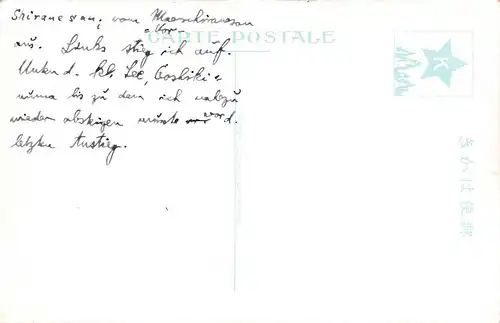 Shiranesan, vom Maeshiranesan
= Vor-
aus. Links stieg ich auf.
CARTE POSTALE
K
Unten d. kl. See, Goshiki=
numa bis zu dem ich nahezu
wieder absteigen musste vor d.
letzten Anstieg.